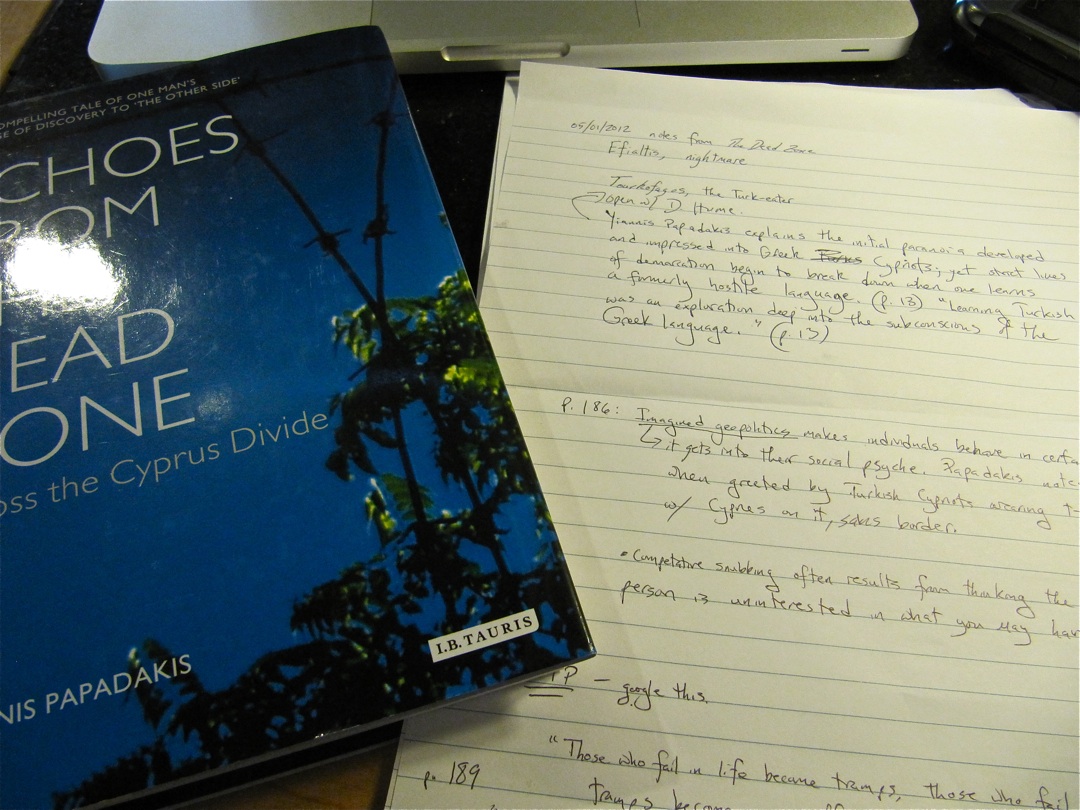 OMPELLING TALE OF ONE MAN'S
GE OF DISCOVERY TO 'THE OTHER SIDE'
CHOES
ROM
EAD
ONE
oss the Cyprus Divide
NIS PAPADAKIS
I.B.TAURIS
05/01/2012 notes from The Dead Zone
Efialtis, nightmare
Tourkofagos, the Turk-eater
open w/ D. Hume.
Yiannis Papadakis explains the initial paranoia developed
and impressed into Greek Cypriots, yet strict lines
of demarcation begin to break down when one learns
a formerly hostile language. (p. 13) "Learning Turkish
was an exploration deep into the subconscious of the
Greek language." (p. 13)
p. 186: Imagined geopolitics makes individuals behave in certa
it gets into their social psyche. Papadakis note
when greeted by Turkish Cypriots wearing t-
w/ Cyprus on it, sans border.
• Competative snubbing often results from thinking the
person is uninterested in what you may hav
TP — google this.
p. 189 "Those who fail in life became tramps, those who fail
tramps become